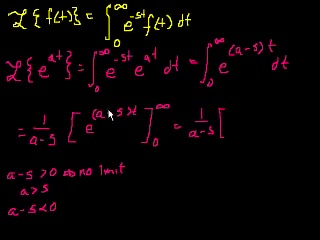 ℒ{f(t)} = ∫₀^∞ e^{-st} f(t) dt
ℒ{e^{at}} = ∫₀^∞ e^{-st} e^{at} dt = ∫₀^∞ e^{(a-s)t} dt
= 1/(a-s) [e^{(a-s)t}]₀^∞ = 1/(a-s) [
a-s>0 ⇒ no limit
a>s
a-s<0